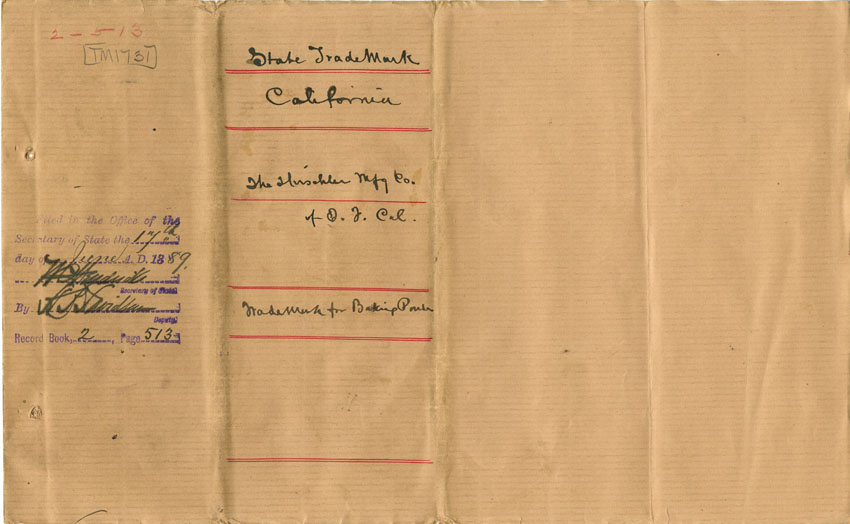 2 - 5 13
TM1731
State TradeMark
California
The Hirschler Mfg Co.
of S. F. Cal.
TradeMark for Baking Powder
Filed in the Office of the
Secretary of State the 17th
day of June A. D. 1889.
W C Hendricks
Secretary of State
By
Deputy
Record Book, 2, Page 513